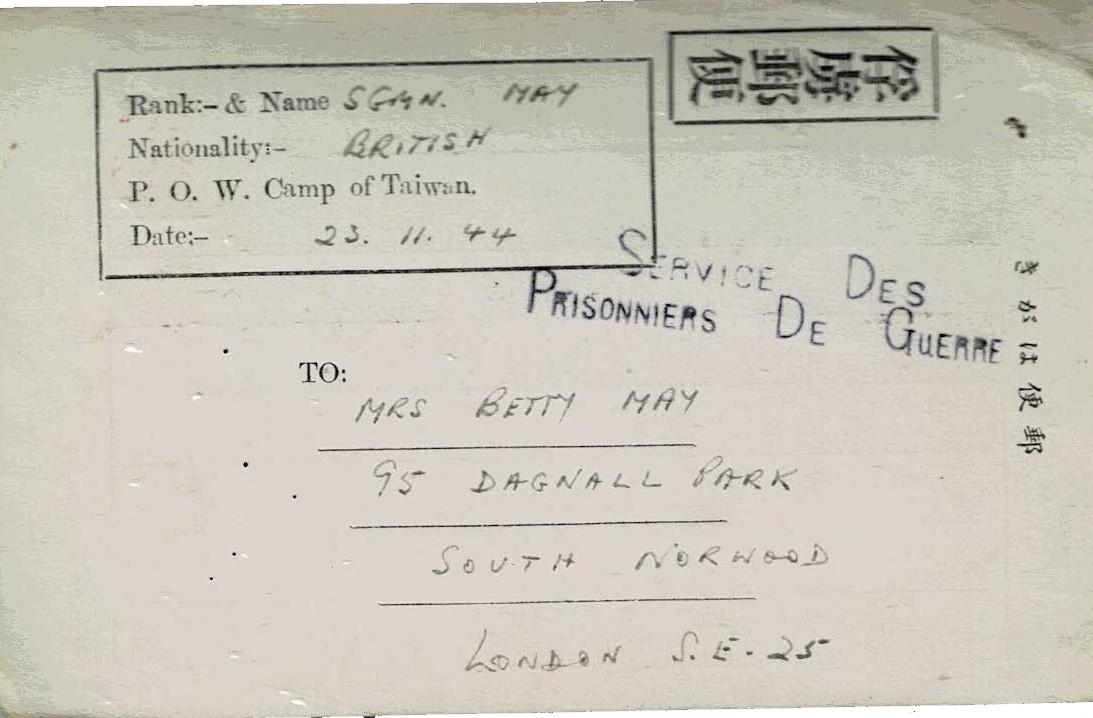 Rank:- & Name SGMN. MAY
Nationality:- BRITISH
P. O. W. Camp of Taiwan.
Date:- 23. 11. 44
俘虜郵便
SERVICE DES
PRISONNIERS DE GUERRE
きがは便郵
TO:
MRS BETTY MAY
95 DAGNALL PARK
SOUTH NORWOOD
LONDON S.E. 25